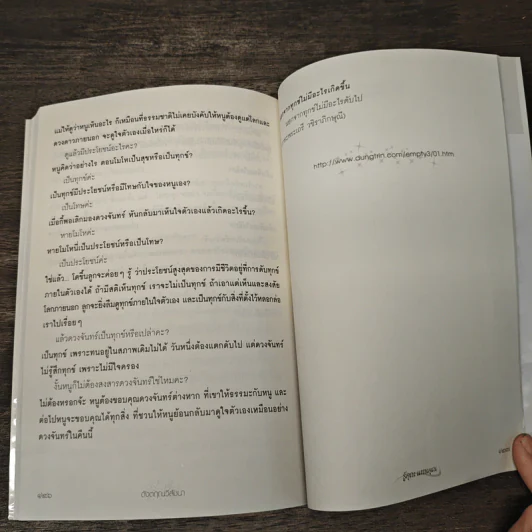 แม่ให้ดูว่าหนูเห็นอะไร ก็เหมือนที่ธรรมชาติไม่เคยบังคับให้หนูต้องดูแต่โลกและ
ดวงดาวภายนอก จะดูใจตัวเองเมื่อไหร่ก็ได้
ดูแล้วมีประโยชน์อะไรคะ?
หนูคิดว่าอย่างไร ตอนโมโหเป็นสุขหรือเป็นทุกข์?
เป็นทุกข์ค่ะ
เป็นทุกข์มีประโยชน์หรือมีโทษกับใจของหนูเอง?
เป็นโทษค่ะ
เมื่อกี้พอเลิกมองดวงจันทร์ หันกลับมาเห็นใจตัวเองแล้วเกิดอะไรขึ้น?
หายโมโหค่ะ
หายโมโหนี่เป็นประโยชน์หรือเป็นโทษ?
เป็นประโยชน์ค่ะ
ใช่แล้ว... โตขึ้นลูกจะค่อยๆ รู้ ว่าประโยชน์สูงสุดของการมีชีวิตอยู่ที่การดับทุกข์
ภายในตัวเองได้ ถ้ามีสติเห็นทุกข์ เราจะไม่เป็นทุกข์ ถ้าเอาแต่เห็นและสงสัย
โลกภายนอก ลูกจะยิ่งลืมดูทุกข์ภายในใจตัวเอง และเป็นทุกข์กับสิ่งที่ตั้งไว้หลอกล่อ
เราไปเรื่อยๆ
แล้วดวงจันทร์เป็นทุกข์หรือเปล่าคะ?
เป็นทุกข์ เพราะทนอยู่ในสภาพเดิมไม่ได้ วันหนึ่งต้องแตกดับไป แต่ดวงจันทร์
ไม่รู้สึกทุกข์ เพราะไม่มีใจครอง
งั้นหนูก็ไม่ต้องสงสารดวงจันทร์ใช่ไหมคะ?
ไม่ต้องหรอกจ้ะ หนูต้องขอบคุณดวงจันทร์ต่างหาก ที่เขาให้ธรรมะกับหนู และ
ต่อไปหนูจะขอบคุณได้ทุกสิ่ง ที่ชวนให้หนูย้อนกลับมาดูใจตัวเองเหมือนอย่าง
ดวงจันทร์ในคืนนี้
จิตจักรวาล
จากทุกข์ไม่มีอะไรเกิดขึ้น
นอกจากทุกข์ไม่มีอะไรดับไป
วชิราภิกษุณี)
http://www.dungtrin.com/empty3/01.htm